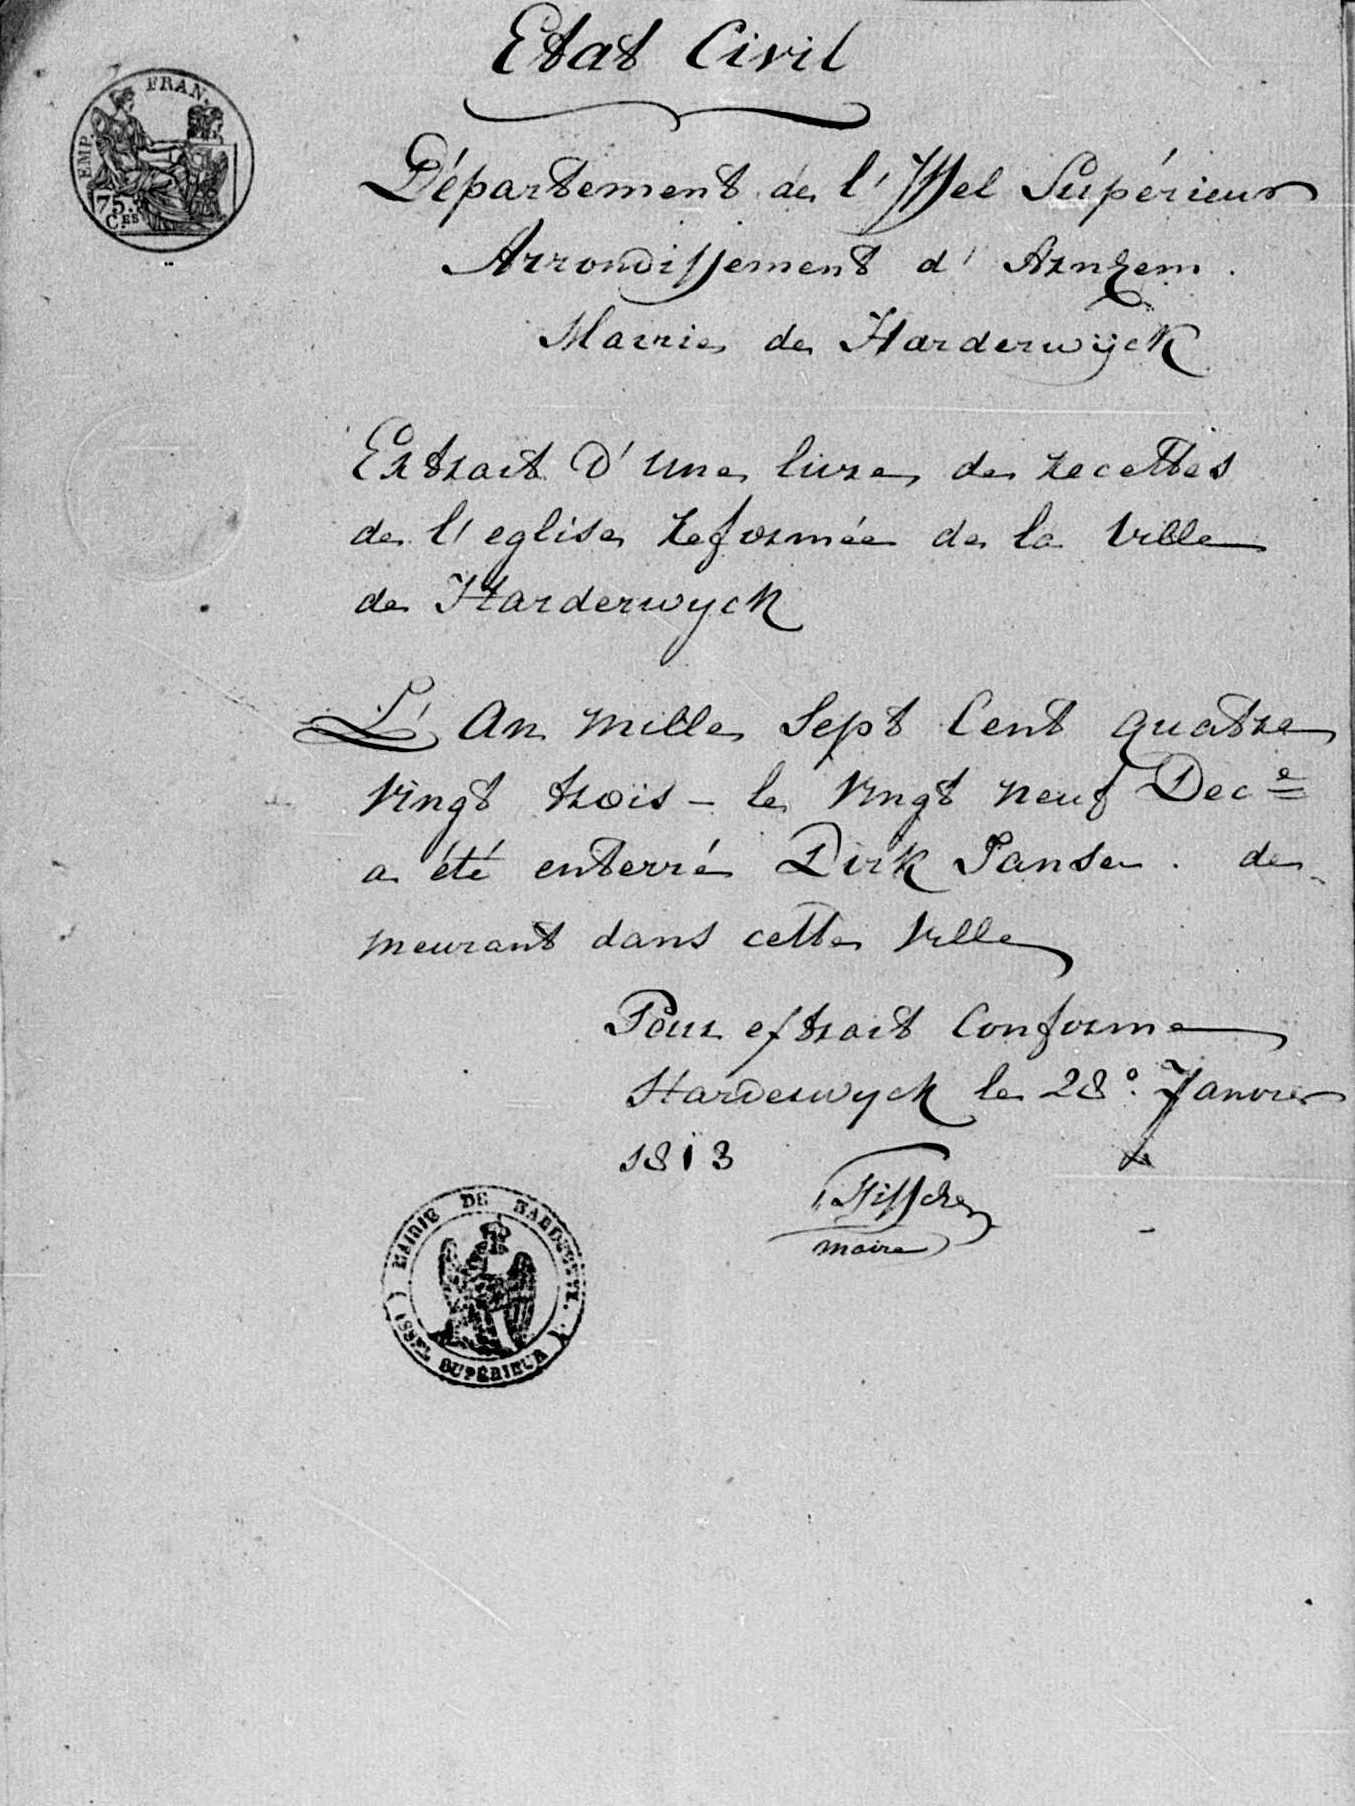 Etat Civil
EMP. FRAN.
75.
C.ES
Département de l'Yssel Supérieur
Arrondissement d'Arnhem.
Mairie de Harderwÿck
Extrait d'une livre de recettes
de l'eglise reformée de la Ville
de Harderwyck
L'An mille Sept Cent quatre
Vingt troïs – le Vingt neuf Dec.e
a été enterré Dirk Janse. de
meurant dans cette Ville
Pour extrait Conforme
Harderwyck le 28° Janvier
1813
maire
MAIRIE DE
SUPÉRIEUR